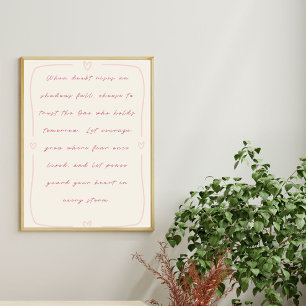 When doubt rises or
shadows fall, choose to
trust the One who holds
tomorrow. Let courage
grow where fear once
lived, and let peace
guard your heart in
every storm.